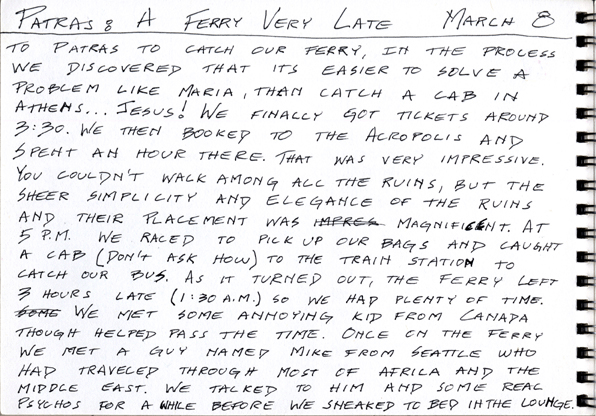 PATRAS: A FERRY VERY LATE MARCH 8
TO PATRAS TO CATCH OUR FERRY, IN THE PROCESS
WE DISCOVERED THAT ITS EASIER TO SOLVE A
PROBLEM LIKE MARIA, THAN CATCH A CAB IN
ATHENS... JESUS! WE FINALLY GOT TICKETS AROUND
3:30. WE THEN BOOKED TO THE ACROPOLIS AND
SPENT AN HOUR THERE. THAT WAS VERY IMPRESSIVE.
YOU COULDN'T WALK AMONG ALL THE RUINS, BUT THE
SHEER SIMPLICITY AND ELEGANCE OF THE RUINS
AND THEIR PLACEMENT WAS IMPRES MAGNIFICENT. AT
5 P.M. WE RACED TO PICK UP OUR BAGS AND CAUGHT
A CAB (DON'T ASK HOW) TO THE TRAIN STATION TO
CATCH OUR BUS. AS IT TURNED OUT, THE FERRY LEFT
3 HOURS LATE (1:30 A.M.) SO WE HAD PLENTY OF TIME.
SOME WE MET SOME ANNOYING KID FROM CANADA
THOUGH HELPED PASS THE TIME. ONCE ON THE FERRY
WE MET A GUY NAMED MIKE FROM SEATTLE WHO
HAD TRAVELED THROUGH MOST OF AFRICA AND THE
MIDDLE EAST. WE TALKED TO HIM AND SOME REAL
PSYCHOS FOR A WHILE BEFORE WE SNEAKED TO BED IN THE LOUNGE.